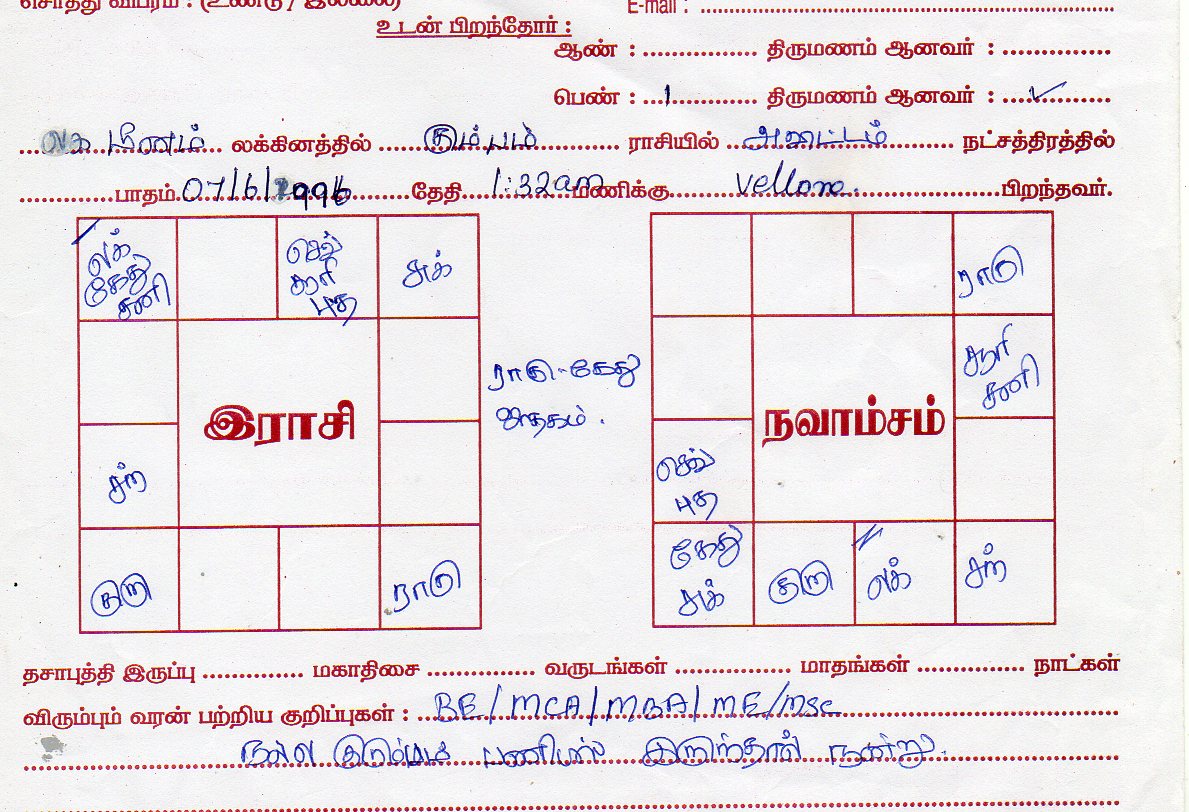 சொத்து விபரம் : (உண்டு / இல்லை)
E-mail : ....................
உடன் பிறந்தோர் :
ஆண் : ................. திருமணம் ஆனவர் : ................
பெண் : ...1............. திருமணம் ஆனவர் : ....✓...........
மீனம் லக்கினத்தில் கும்பம் ராசியில் அவிட்டம் நட்சத்திரத்தில்
பாதம் 07/6/1996 தேதி 1:32am மணிக்கு Vellore. பிறந்தவர்.
லக் கேது சனி
செவ் சூரி புத
சுக்
ராகு
ராகு-கேது ஜாதகம்.
சூரி சனி
இராசி
நவாம்சம்
சந்
செவ் புத
குரு
ராகு
கேது சுக்
குரு
லக்
சந்
தசாபுத்தி இருப்பு .............. மகாதிசை .............. வருடங்கள் .............. மாதங்கள் .............. நாட்கள்
விரும்பும் வரன் பற்றிய குறிப்புகள் : BE/MCA/MBA/ME/Msc
நல்ல குடும்பம் பணியில் இருந்தால் நன்று.